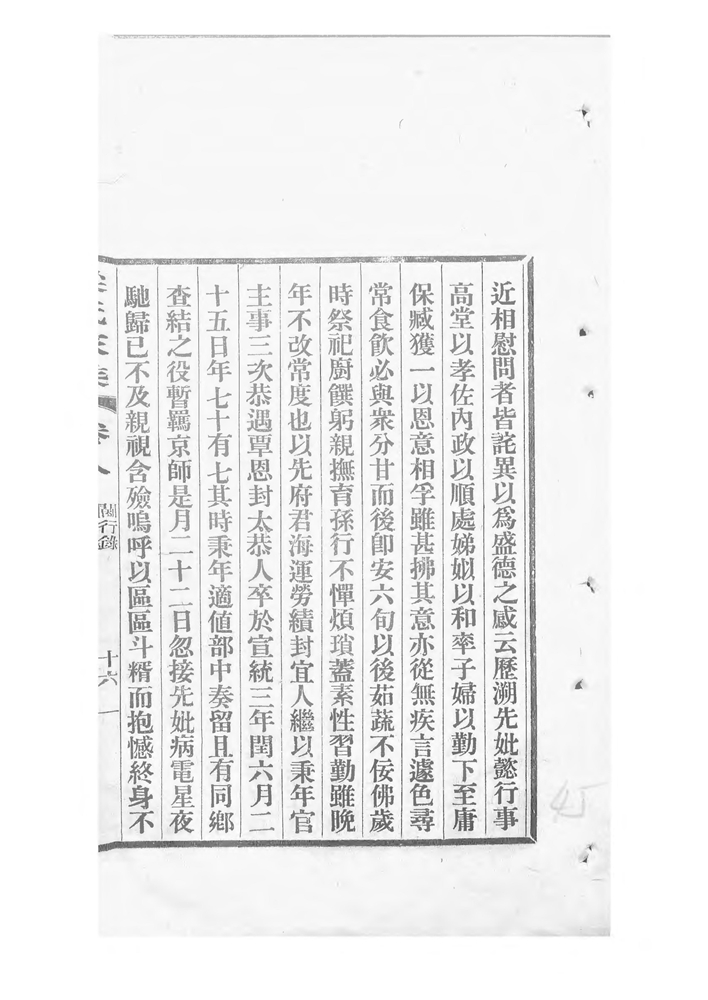 近相慰問者皆詫異以爲盛德之感云歷溯先妣懿行事
高堂以孝佐內政以順處娣姒以和率子婦以勤下至庸
保臧獲一以恩意相孚雖甚拂其意亦從無疾言遽色尋
常食飲必與衆分甘而後卽安六旬以後茹蔬不佞佛歲
時祭祀廚饌躬親撫育孫行不憚煩瑣蓋素性習勤雖晚
年不改常度也以先府君海運勞績封宜人繼以秉年官
主事三次恭遇覃恩封太恭人卒於宣統三年閏六月二
十五日年七十有七其時秉年適値部中奏留且有同鄉
查結之役暫羈京師是月二十二日忽接先妣病電星夜
馳歸已不及親視含殮嗚呼以區區斗糈而抱憾終身不
卷八
閩行錄
十六
45